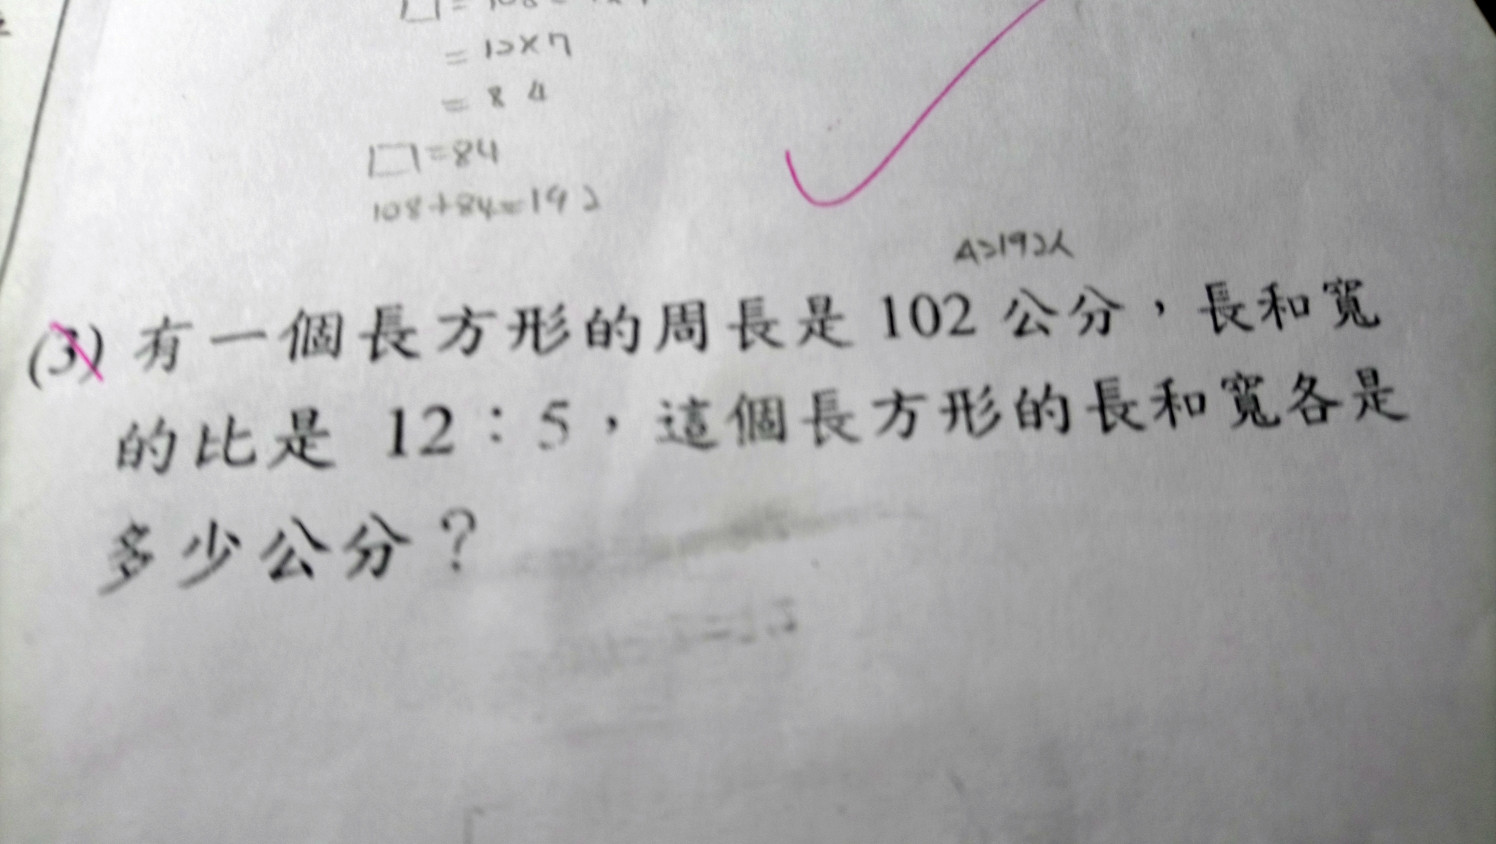 = 12×7
= 84
□=84
108+84=192
A:192人
(3) 有一個長方形的周長是 102 公分，長和寬
的比是 12：5，這個長方形的長和寬各是
多少公分？